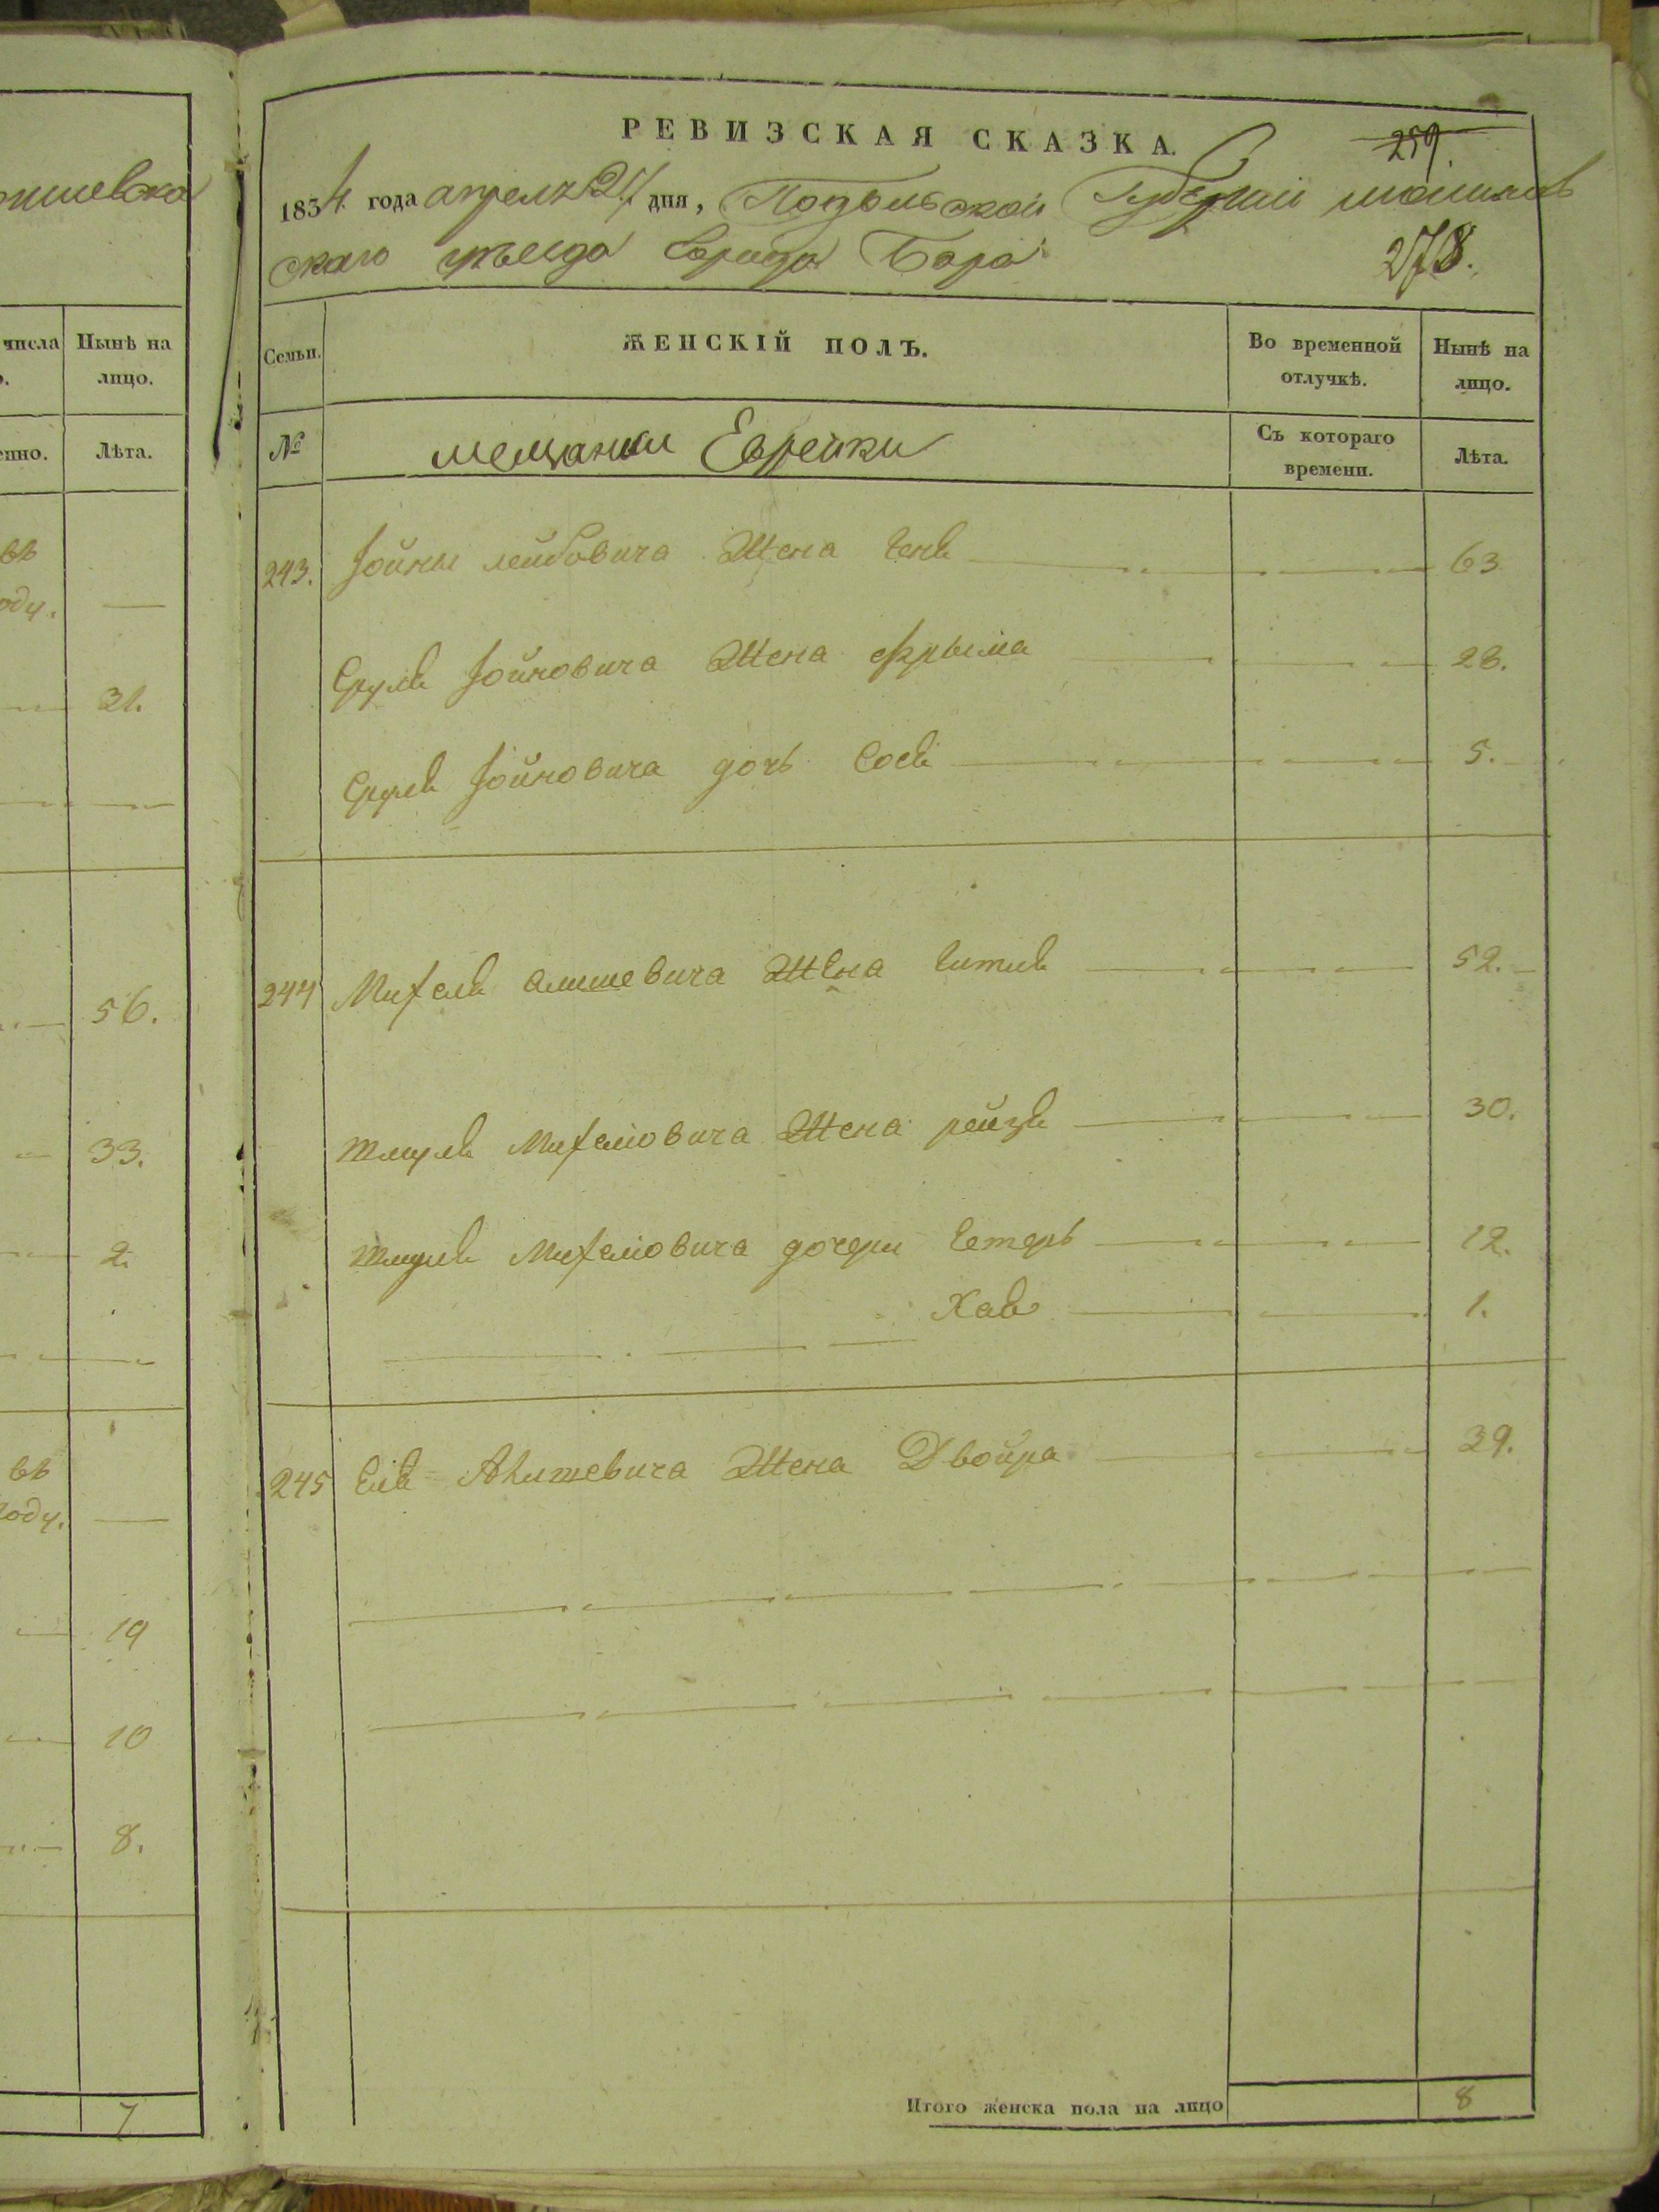 чнсла
Нынѣ на
лицо.
Лѣта.
въ
оду.
31.
56.
33.
2.
въ
году.
19
10
8.
7
РЕВИЗСКАЯ СКАЗКА.
259.
1834 года апреля 27 дня, Подольской Губерніи могилев
скаго уѣзда города Бара
278.
Семьи.
ЖЕНСКІЙ ПОЛЪ.
Во временной
отлучкѣ.
Нынѣ на
лицо.
№
мещанки Еврейки
Съ котораго
времени.
Лѣта.
243. Іойны лейбовича Жена 63
Сруля Іойновича Жена Фрыма 28.
Сруля Іойновича дочь Сося 5.
244 Михеля Жена 52.
Шмуля Михелiовича Жена рейзя 30.
Шмуля Михелiовича дочери Естерь 12.
Хава 1.
245 Жена Двойра 39.
Итого женска пола на лицо 8